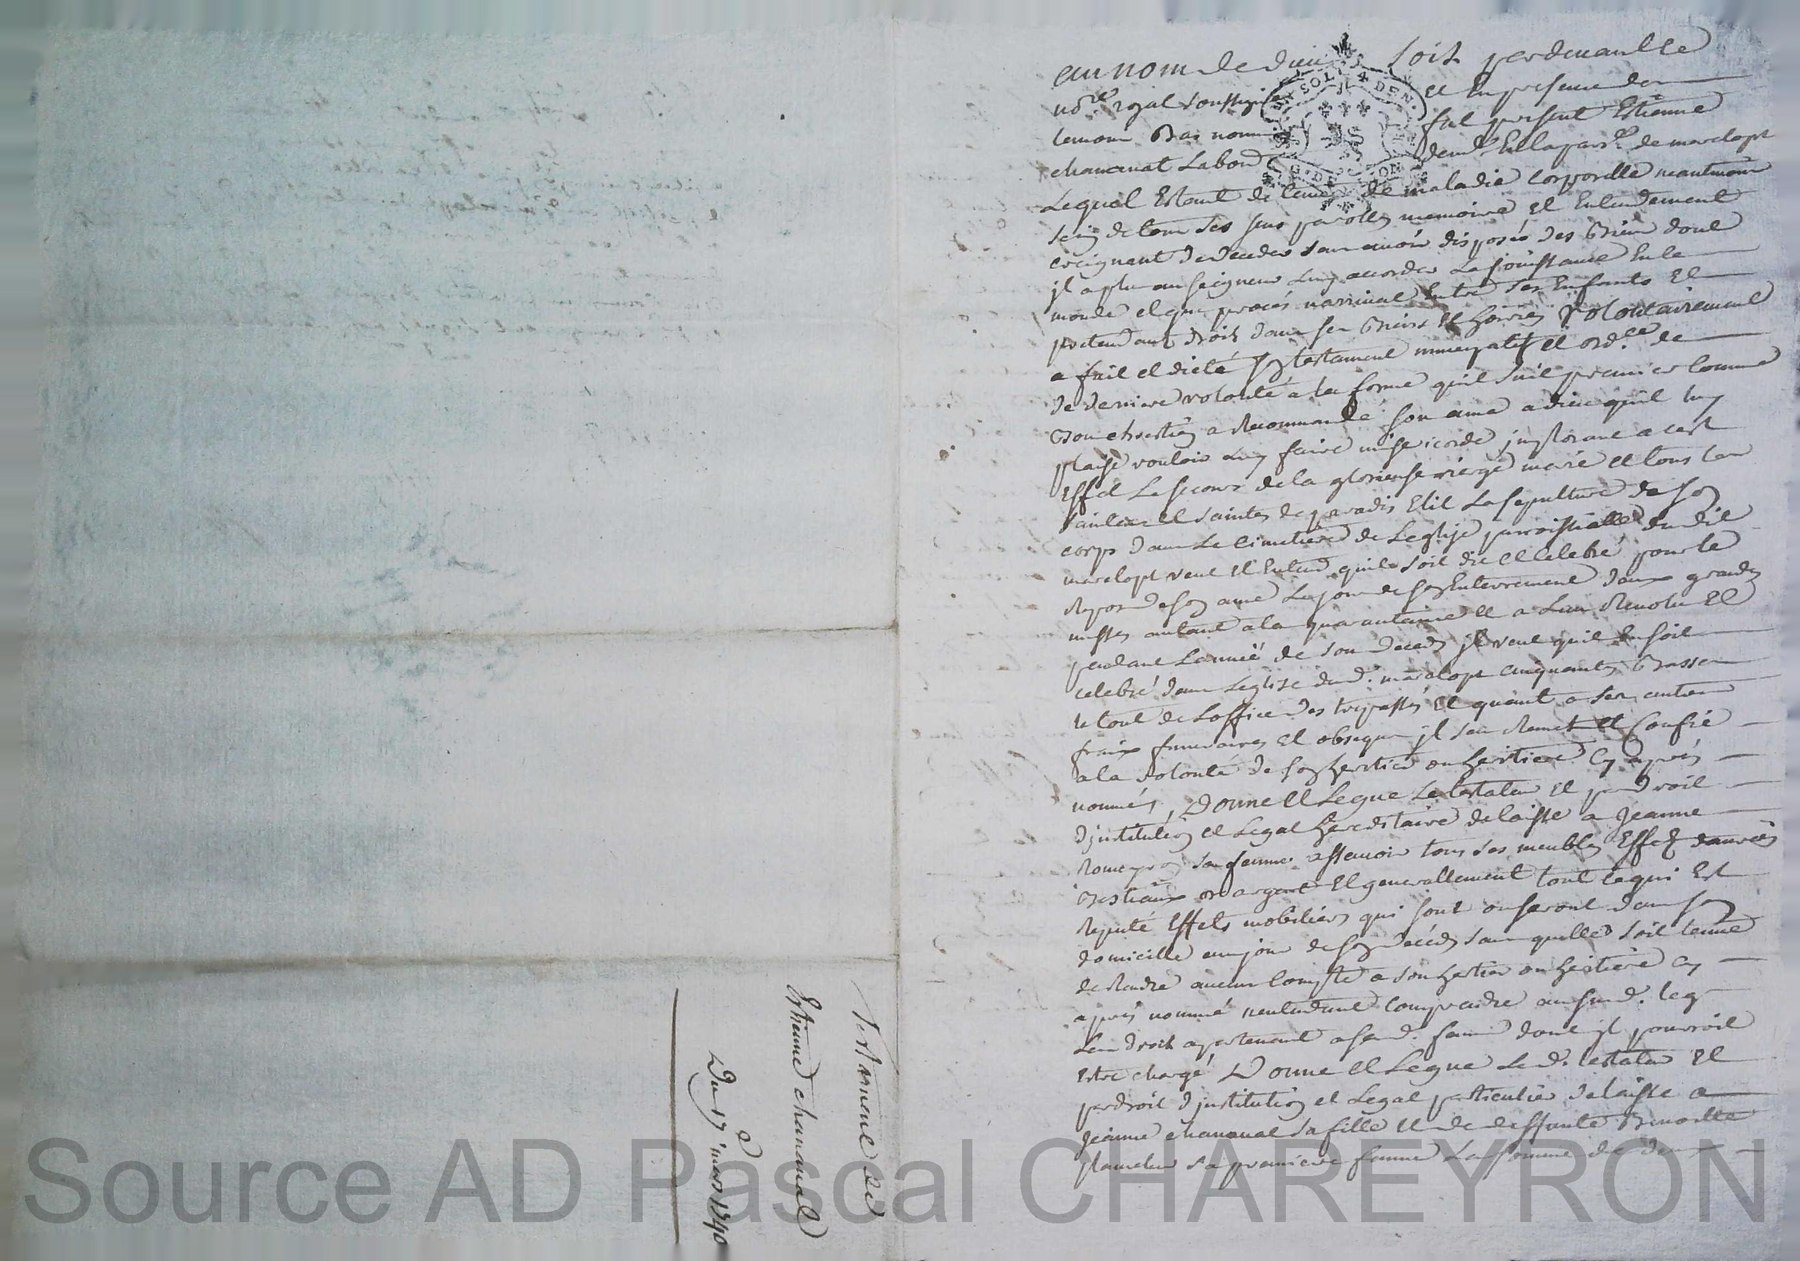 au nom de dieu soit pardevant le
no.re royal soussigné et en presence de
temoins bas nommes fut present Estienne
chamanat Labour demt En la parr. de marclopt
Lequel Estant detenu de maladie corporelle neantmoins
sein de tous ses sens parolles memoire et Entendement
creignant de deceder sans avoir disposés des biens dont
il a plu au seigneur luy accorder La joüissance En ce
monde et que procès n'arrivat Entre ses Enfants Et
pretendants droits dans ses biens et hoiries volontairement
a fait et dicté son testament nuncupatif et ord.ce de
de derniere volonté a la forme quil suit premier comme
bon chrestien a Recommandé son ame a dieu quil luy
plaise vouloir luy faire misericorde implorant a cest
Effet Le secours de la glorieuse vierge marie et tous les
saints et saintes de paradis Elit La sepulture de son
corps dans Le cimetiere de Leglise parroissialle dudit
marclopt veut et Entend quil soit dit et celebré pour le
Repos de son ame Le jour de son Enterrement deux grandes
messes autant a la quarantaine et a L'an Revolu Et
pendant Lannée de son deceds il veut quil En soit
celebré dans Leglise dud. marclopt cinquantes basses
le tout de Loffice des trepassés Et quant a ses autres
fraix funeraires et obseques il sen Remet et Confie
a la volonté de son heritier ou heritiere Cy après
nommés, Donne et Legue Le testateur et par droit
d'jnstitution et Legat hereditaire delaisse a Jeanne
Romeyer sa femme assavoir tous ses meubles Effets danrées
bestiaux or argent Et generallement tout ce qui Est
Reputé Effets mobiliers qui sont ou seront dans son
domicille au jour de son décéds sans quelle soit tenue
de Rendre aucun Compte a son heritier ou heritiere cy
après nommé n'entendant comprendre au susd. legs
Les droits apartenant a sa d. femme dont il pourroit
Estre chargé Donne et Legue Le d. testateur Et
par droit d'jnstitution et Legat particulier delaisse a
Jeanne chamanat sa fille et de deffunte Benoitte
sa premiere femme La somme de
Testament de
Estienne chamanat
Du 17e mars 1740
Source AD Pascal CHAREYRON